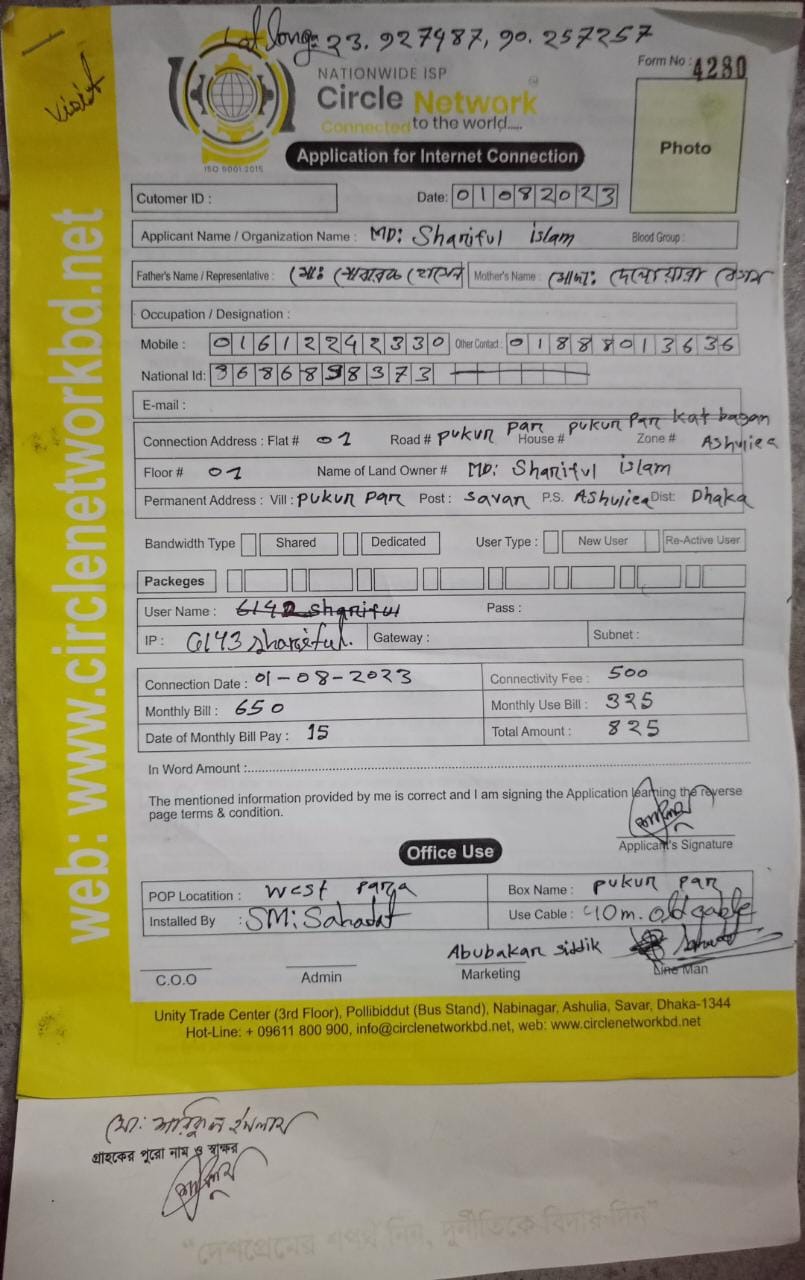 Lat long: 23.927487, 90.257257
Visit
NATIONWIDE ISP
Form No : 4280
Circle Network
Connected to the world.....
ISO 9001:2015
Photo
Application for Internet Connection
Cutomer ID :
Date: 01082023
Applicant Name / Organization Name : MD: Shariful islam Blood Group :
Father's Name / Representative : মোঃ Mother's Name : মোসাঃ দেলোয়ারা বেগম
Occupation / Designation :
Mobile : 01612242330 Other Contact : 01888013636
National Id: 8373
E-mail :
Connection Address : Flat # 01 Road # pukur par House # pukur par Zone # kat bagan Ashuliea
Floor # 01 Name of Land Owner # MD: Shariful islam
Permanent Address : Vill : pukur par Post : savar P.S. Ashuliea Dist: Dhaka
Bandwidth Type Shared Dedicated User Type : New User Re-Active User
Packeges
User Name : 6142 shariful Pass :
IP : 6143 shariful. Gateway : Subnet :
Connection Date : 01-08-2023 Connectivity Fee : 500
Monthly Bill : 650 Monthly Use Bill : 325
Date of Monthly Bill Pay : 15 Total Amount : 825
In Word Amount :
The mentioned information provided by me is correct and I am signing the Application learning the reverse
page terms & condition.
Applicant's Signature
Office Use
POP Locatition : West Parga Box Name : pukur par
Installed By : SM: Sahadat Use Cable : 40m. old cable
Abubakar siddik
C.O.O Admin Marketing Line Man
Unity Trade Center (3rd Floor), Pollibiddut (Bus Stand), Nabinagar, Ashulia, Savar, Dhaka-1344
Hot-Line: + 09611 800 900, info@circlenetworkbd.net, web: www.circlenetworkbd.net
web: www.circlenetworkbd.net
মো: শরিফুল ইসলাম
গ্রাহকের পুরো নাম ও স্বাক্ষর
"দেশপ্রেমের শপথ নিন, দুর্নীতিকে বিদায় দিন"